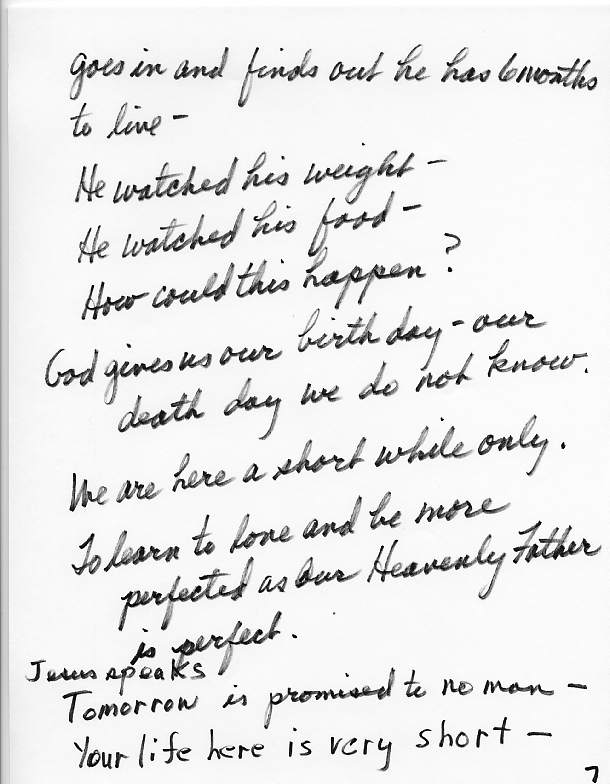 goes in and finds out he has 6 months
to live -
He watched his weight -
He watched his food -
How could this happen ?
God gives us our birth day - our
death day we do not know.
We are here a short while only.
To learn to love and be more
perfected as our Heavenly Father
is perfect.
Jesus speaks
Tomorrow is promised to no man -
Your life here is very short -
7